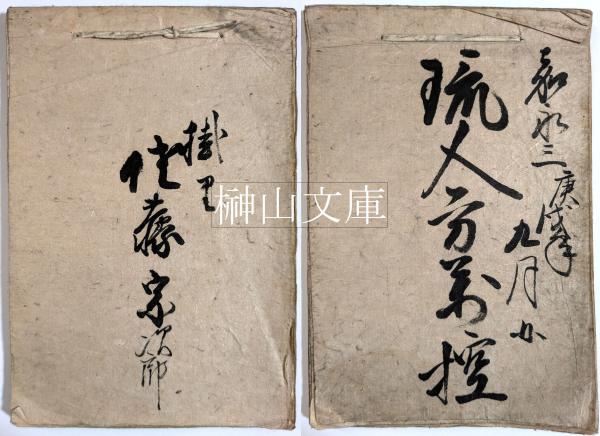 嘉永三庚戌年
九月
琉人方萬控
掛里
佐藤宗次郎
榊山文庫